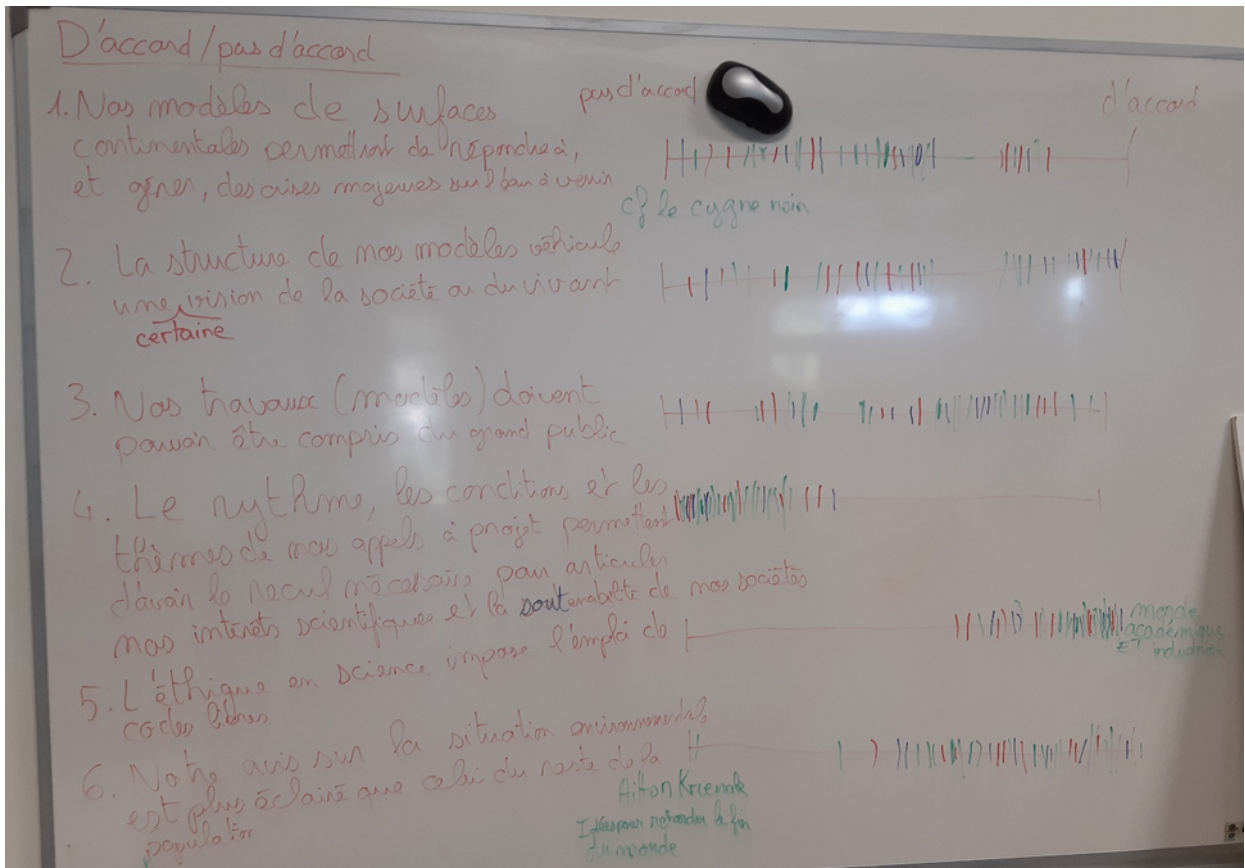 D'accord/pas d'accord
pas d'accord
d'accord
1. Nos modèles de surfaces
continentales permettront de répondre à,
et gérer, des crises majeures sur l'
à venir
cf le cygne noir
2. La structure de nos modèles véhicule
une vision de la société ou du vivant
certaine
3. Nos travaux (modèles) doivent
pouvoir être compris du grand public
4. Le rythme, les conditions et les
thèmes de nos appels à projet permettent
d'avoir le recul nécessaire pour articuler
nos intérêts scientifiques et la soutenabilité de nos sociétés
5. L'éthique en science impose l'emploi de
codes libres
monde
académique
ET industriel
6. Notre avis sur la situation environnementale
est plus éclairé que celui du reste de la
population
Ailton Krenak
Idées pour retarder la fin
du monde